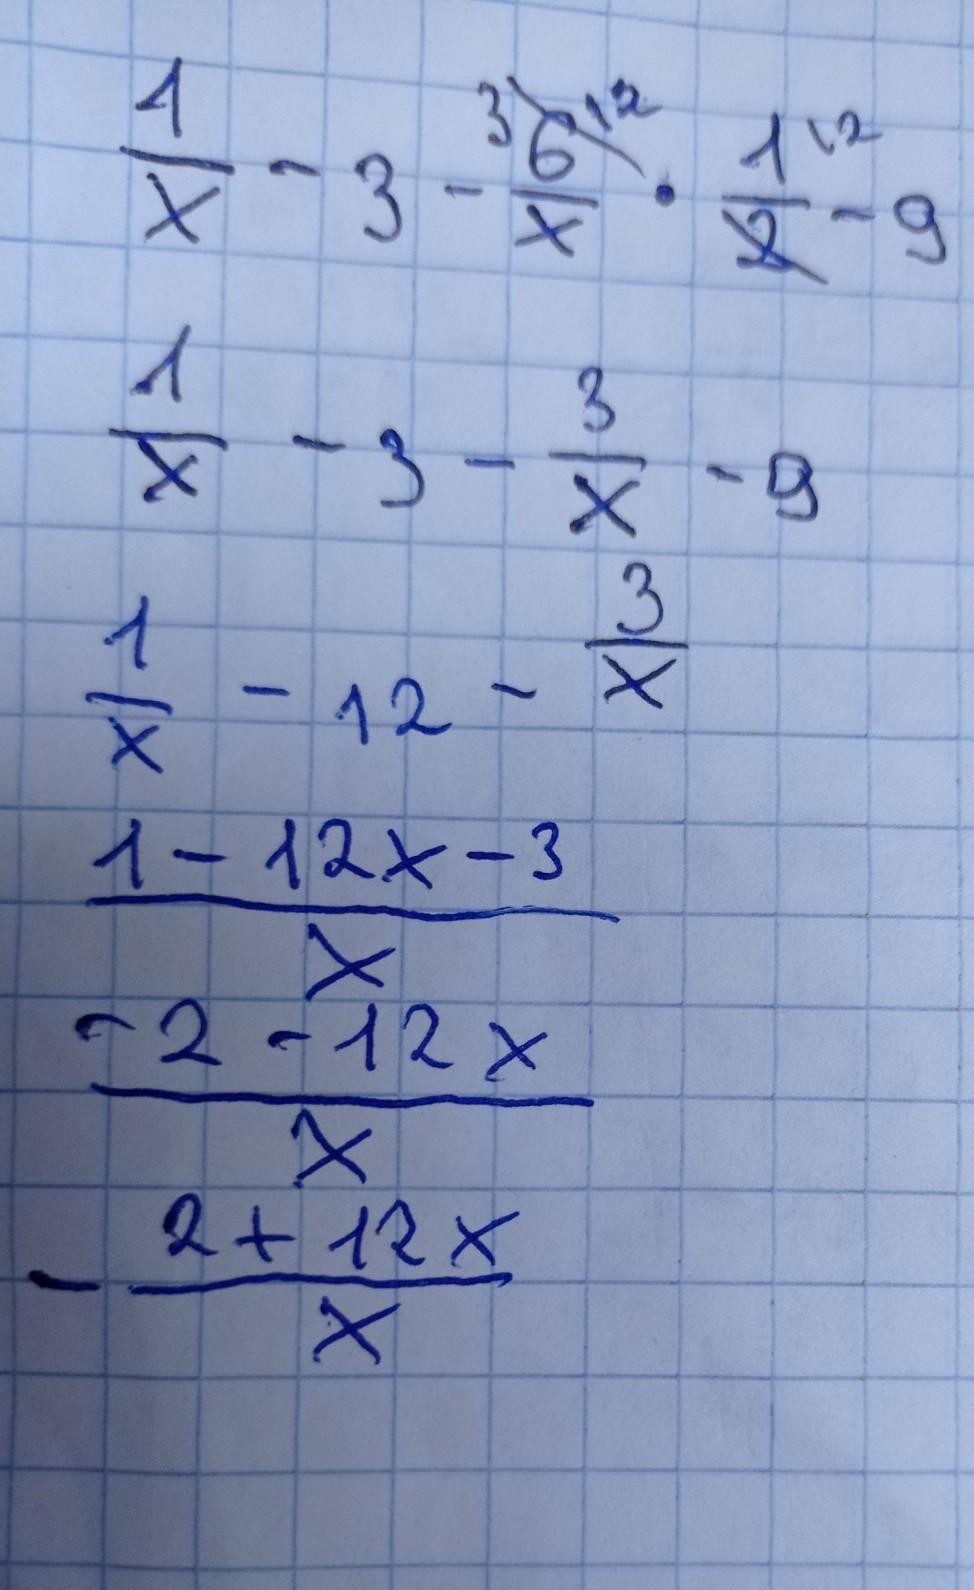 1/x - 3 - 3 6/x :2 · 1/2 :2 - 9
1/x - 3 - 3/x - 9
1/x - 12 - 3/x
(1 - 12x - 3)/x
(-2 - 12x)/x
-(2 + 12x)/x